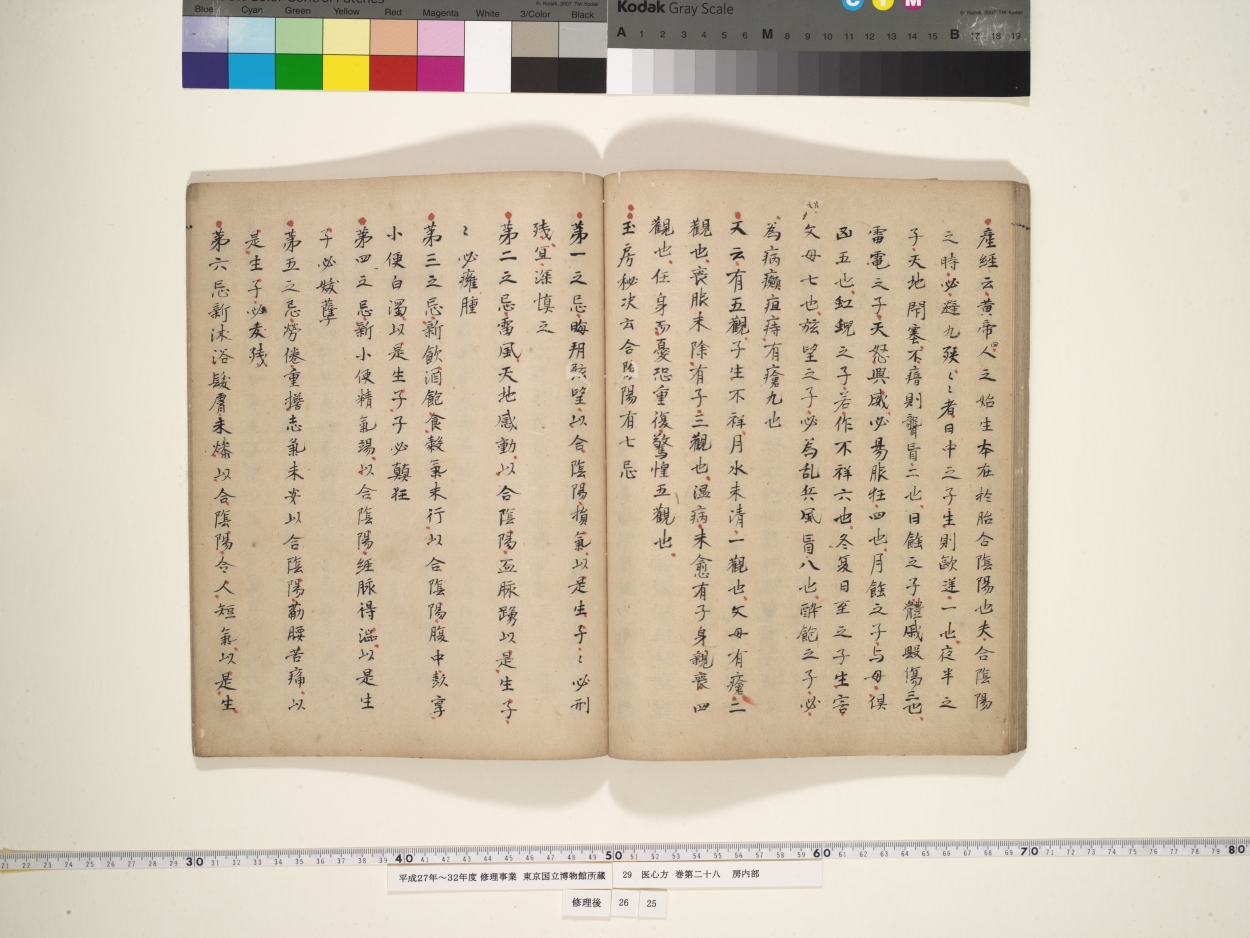 Blue Cyan Green Yellow Red Magenta White 3/Color Black
© Kodak, 2007 TM: Kodak
Kodak Gray Scale
C Y M
© Kodak, 2007 TM: Kodak
A 1 2 3 4 5 6 M 8 9 10 11 12 13 14 15 B 17 18 19
産經云黄帝人之始生本在於胎合陰陽也夫合陰陽
之時必避九殃々者日中之子生則歐逆一也夜半之
子天地閇塞不瘖則聾盲二也日蝕之子體戚毀傷三也
雷電之子天怒興威必易服狂四也月蝕之子与母倶
凶五也虹蜺之子若作不祥六也冬夏日至之子生害
父母七也弦望之子必為乱兵風盲八也酔飽之子必
為病癲疽痔有瘡九也
又云有五觀子生不祥月水未清一觀也父母有瘡二
觀也喪服未除有子三觀也温病未愈有子身親喪四
觀也任身而憂恐重復驚惶五觀也
玉房秘决云合陰陽有七忌
第一之忌晦朔弦望以合陰陽損氣以是生子々必刑
残宜深慎之
第二之忌雷風天地感動以合陰陽血脉踴以是生子
々必癰腫
第三之忌新飲酒飽食穀氣未行以合陰陽腹中彭享
小便白濁以是生子子必顛狂
第四之忌新小便精氣竭以合陰陽経脉得澁以是生
子必妖孽
第五之忌勞倦重擔志氣未安以合陰陽筋腰苦痛以
是生子必夭残
第六忌新沐浴髮膚未燥以合陰陽令人短氣以是生
21 22 23 24 25 26 27 28 29 30 31 32 33 34 35 36 37 38 39 40 41 42 43 44 45 46 47 48 49 50 51 52 53 54 55 56 57 58 59 60 61 62 63 64 65 66 67 68 69 70 71 72 73 74 75 76 77 78 79 80
平成27年～32年度 修理事業 東京国立博物館所蔵
29 医心方 巻第二十八 房内部
修理後 26 25